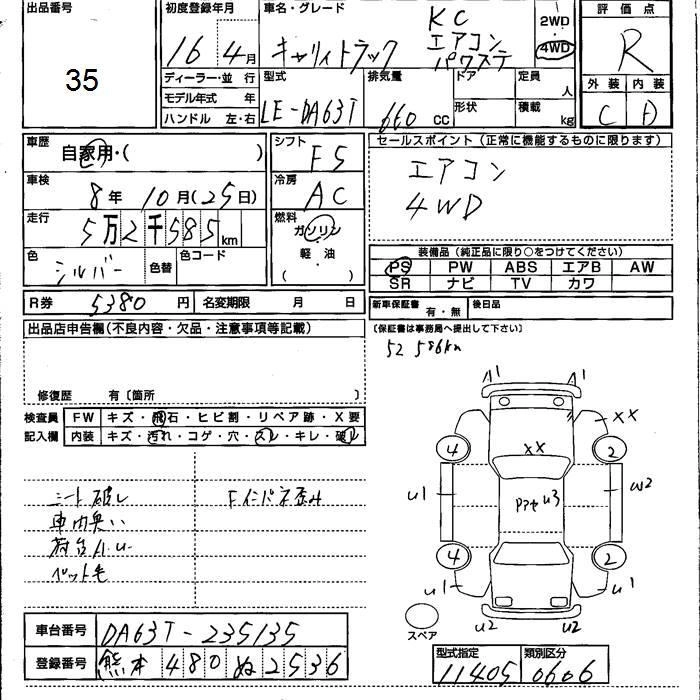 出品番号
35
初度登録年月
16年 4月
ディーラー・並行
モデル年式 年
ハンドル 左・右
車名・グレード
キャリィトラック
KC
エアコン
パワステ
2WD
4WD
評価点
R
外装 内装
C D
型式
LE-DA63T
排気量
660 CC
ドア
形状
定員
人
積載
kg
車歴
自家用・( )
車検
8年 10月(25日)
走行
5万2千585km
色
シルバー
色替
色コード
シフト
F5
冷房
AC
燃料
ガソリン
軽・油
( )
セールスポイント(正常に機能するものに限ります)
エアコン
4WD
装備品(純正品に限り○をつけてください)
PS PW ABS エアB AW
SR ナビ TV カワ
R券 5380円 名変期限 月 日
新車保証書 有・無 後日品
(保証書は事務局へ提出して下さい)
52 586km
出品店申告欄(不良内容・欠品・注意事項等記載)
修復歴 有〔箇所 〕
検査員
記入欄
FW キズ・飛石・ヒビ割・リペア跡・X要
内装 キズ・汚れ・コゲ・穴・スレ・キレ・破レ
シート破レ
車内臭い
荷台A.U
ペット毛
Fインパネ歪み
A1 A1
XX
XX
4 2
U1 U2
U3
4 2
U1 U1
U2 U2
スペア
車台番号 DA63T-235135
登録番号 熊本 480 ぬ 2536
型式指定 類別区分
11405 0606